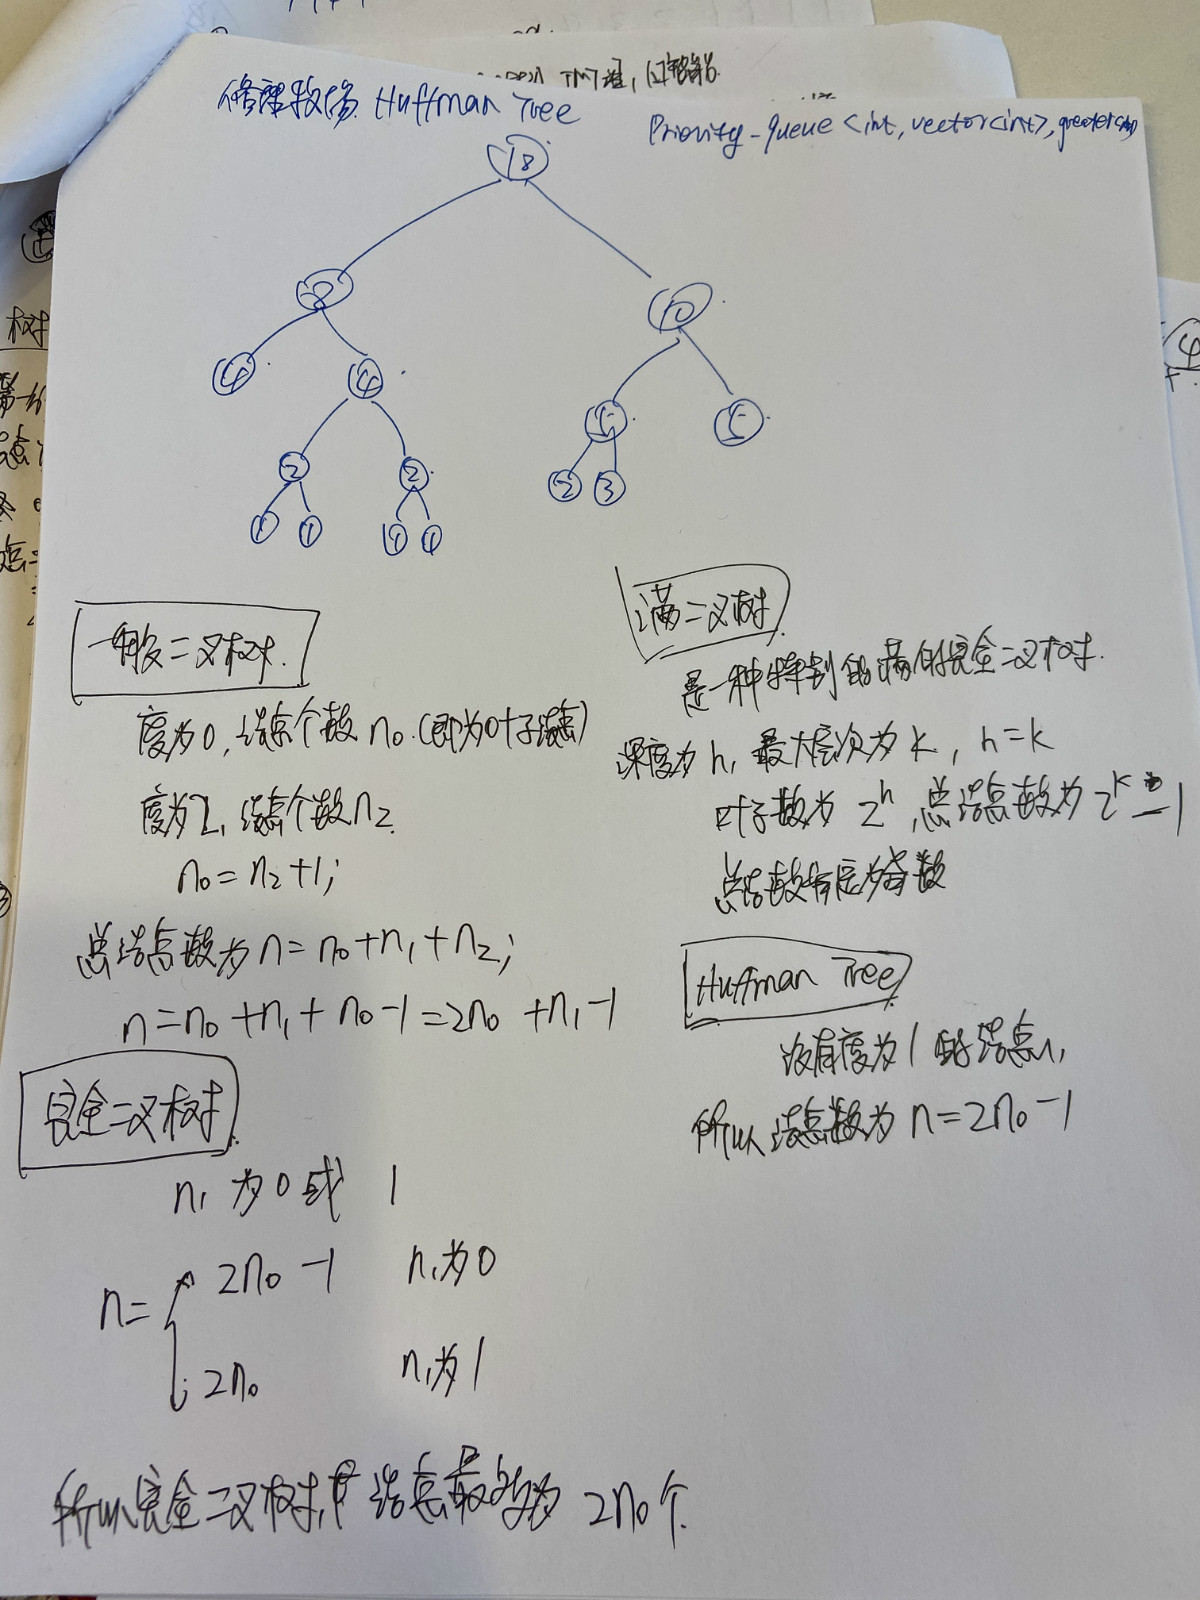 修理牧场 Huffman Tree
Priority-queue <int, vector<int>, greater<int>
18
8
10
4
4
5
5
2
2
2
3
1
1
1
1
一般二叉树.
度为0,结点个数 n₀.(即为叶子结点)
度为2,结点个数n₂.
n₀=n₂+1;
总结点数为 n=n₀+n₁+n₂;
n=n₀+n₁+n₀-1=2n₀+n₁-1
完全二叉树.
n₁ 为 0 或 1
n= 2n₀-1 n₁为0
2n₀ n₁为1
所以完全二叉树,中 结点最多为 2n₀个.
满二叉树.
是一种特别的满的完全二叉树.
深度为 h, 最大层次为 k, h=k
叶子数为 2ʰ,总结点数为 2ᵏ-1
总结数肯定为奇数
Huffman Tree
没有度为1的结点,
所以结点数为 n=2n₀-1
树